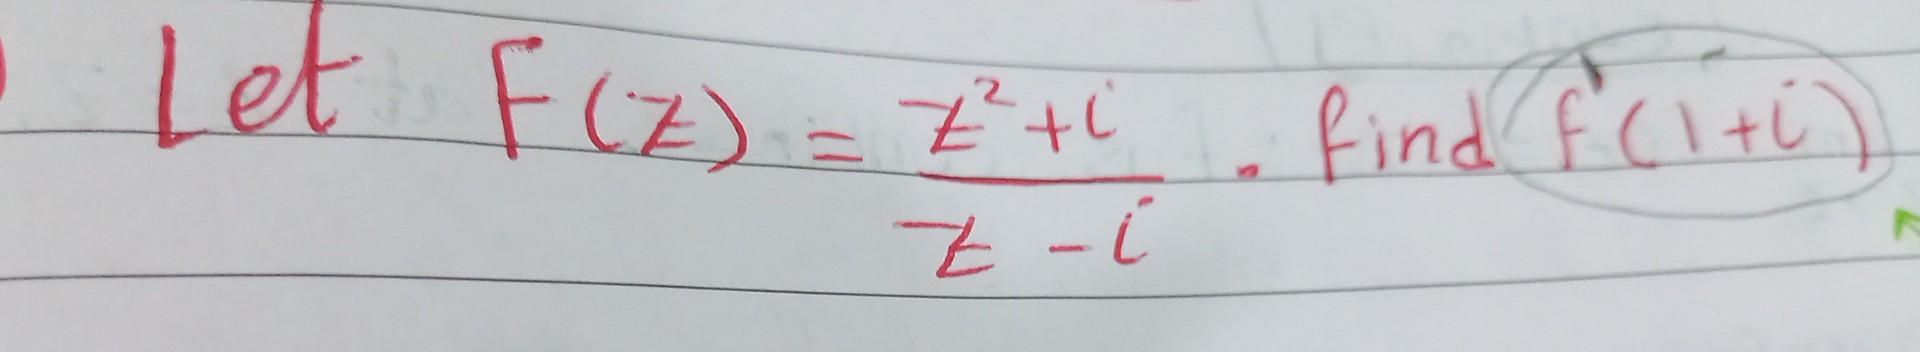 Let F(z) = z²+i / z-i . find f'(1+i)